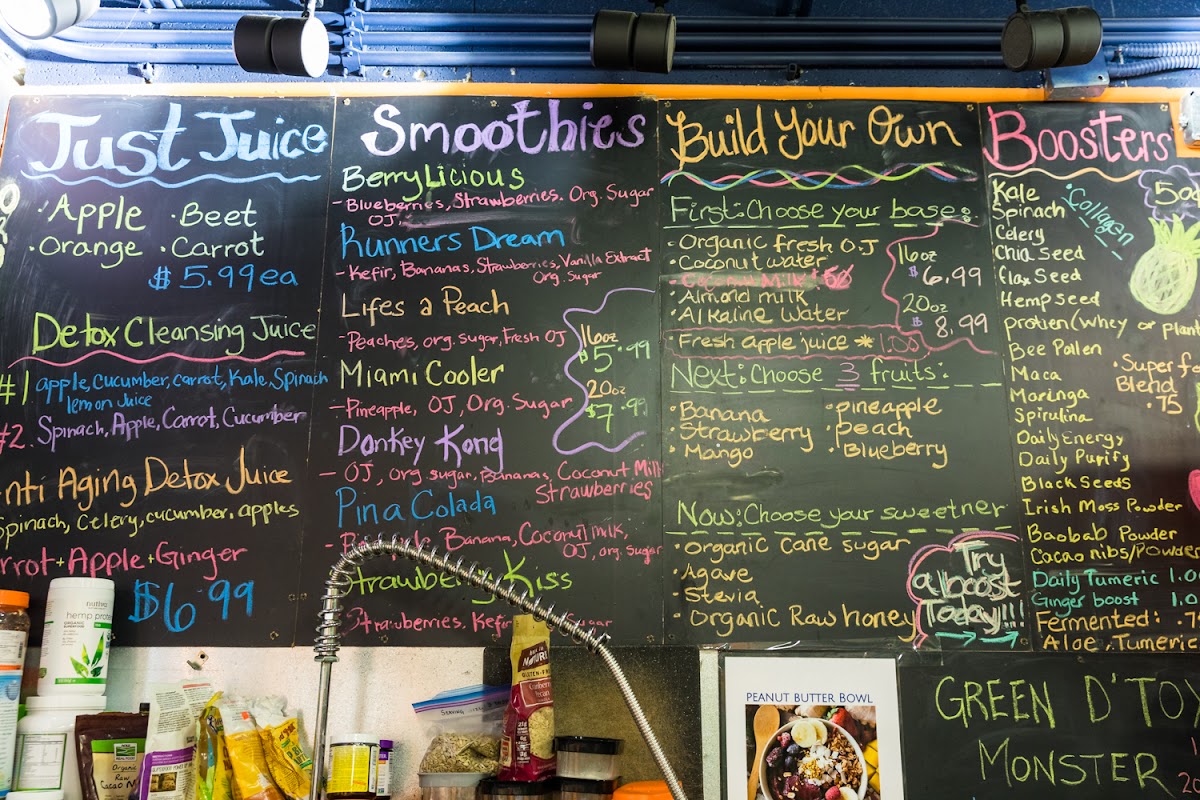 Just Juice
• Apple • Beet
• Orange • Carrot
$5.99 ea
Detox Cleansing Juice
#1 apple, cucumber, carrot, Kale, Spinach
lemon juice
#2. Spinach, Apple, Carrot, Cucumber
nti Aging Detox Juice
Spinach, Celery, cucumber, apples
rrot + Apple + Ginger
$6.99
Smoothies
BerryLicious
- Blueberries, Strawberries. Org. Sugar
OJ,
Runners Dream
- Kefir, Bananas, Strawberries, Vanilla Extract
Org. Sugar
Lifes a Peach
- Peaches, org. sugar, Fresh OJ
Miami Cooler
- Pineapple, OJ, Org. Sugar
16oz
$5.99
20oz
$7.99
Donkey Kong
- OJ, org sugar, Bananas, Coconut Milk
Strawberries
Pina Colada
Banana, Coconut milk,
OJ, org. sugar
Strawberry Kiss
Strawberries, Kefir
Build Your Own
First: Choose your base:
• Organic fresh O.J
• Coconut water
• Coconut Milk
• Almond milk
• Alkaline Water
• Fresh apple juice * 1.00
16oz
$6.99
20oz
$8.99
Next: Choose 3 fruits:
• Banana • pineapple
• Strawberry • peach
• Mango • Blueberry
Now: Choose your sweetner
• Organic cane sugar
• Agave
• Stevia
• Organic Raw honey
Try
a boost
Today!!!
Boosters
50
Kale
Spinach
• Collagen
Celery
Chia Seed
flax Seed
Hemp seed
protien (whey or plan
Bee Pollen
Maca
Moringa
Spirulina
• Super f
Blend
.75
Daily Energy
Daily Purify
Black Seeds
Irish Moss Powder
Baobab Powder
Cacao nibs/Powder
Daily Tumeric 1.0
Ginger boost 1.0
Fermented: .7
Aloe, Tumeric
GREEN D'TO
MONSTER
PEANUT BUTTER BOWL
nutiva
hemp protein
Organic
Raw
Cacao